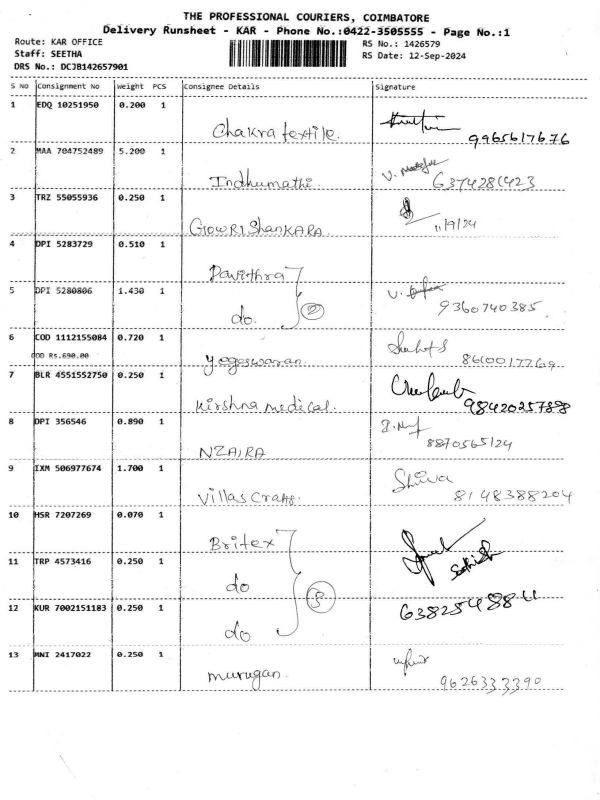 THE PROFESSIONAL COURIERS, COIMBATORE
Delivery Runsheet - KAR - Phone No.:0422-3505555 - Page No.:1
Route: KAR OFFICE RS No.: 1426579
Staff: SEETHA RS Date: 12-Sep-2024
DRS No.: DCJB142657901
S NO Consignment No Weight PCS Consignee Details Signature
1 EDQ 10251950 0.200 1
Chakra textile. 9965617676
2 MAA 704752489 5.200 1
Indhumathi. 6374281423
3 TRZ 55055936 0.250 1
GOWRI ShanKARA 11/9/24
4 DPI 5283729 0.510 1
Pavithra
5 DPI 5280806 1.430 1
do. 2 9360740385
6 COD 1112155084 0.720 1
COD Rs.690.00
yogeswaran 8610017769
7 BLR 4551552750 0.250 1
Kirshna medical. 9842025788
8 DPI 356546 0.890 1
NZAIRA 8870565124
9 IXM 506977674 1.700 1
Villas Crafts. Shiva 8148388204
10 HSR 7207269 0.070 1
Britex
11 TRP 4573416 0.250 1
do Sathish
3
12 KUR 7002151183 0.250 1
do
13 MNI 2417022 0.250 1
murugan 9626333390